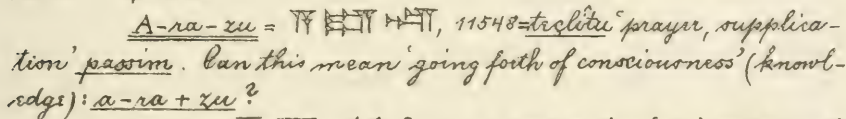 A-ra-zu = 𒀀 𒊏 𒍪, 11548=teṣlîtu 'prayer, supplica-
tion' passim. Can this mean 'going forth of consciousness' (knowl-
edge): a-ra + zu?